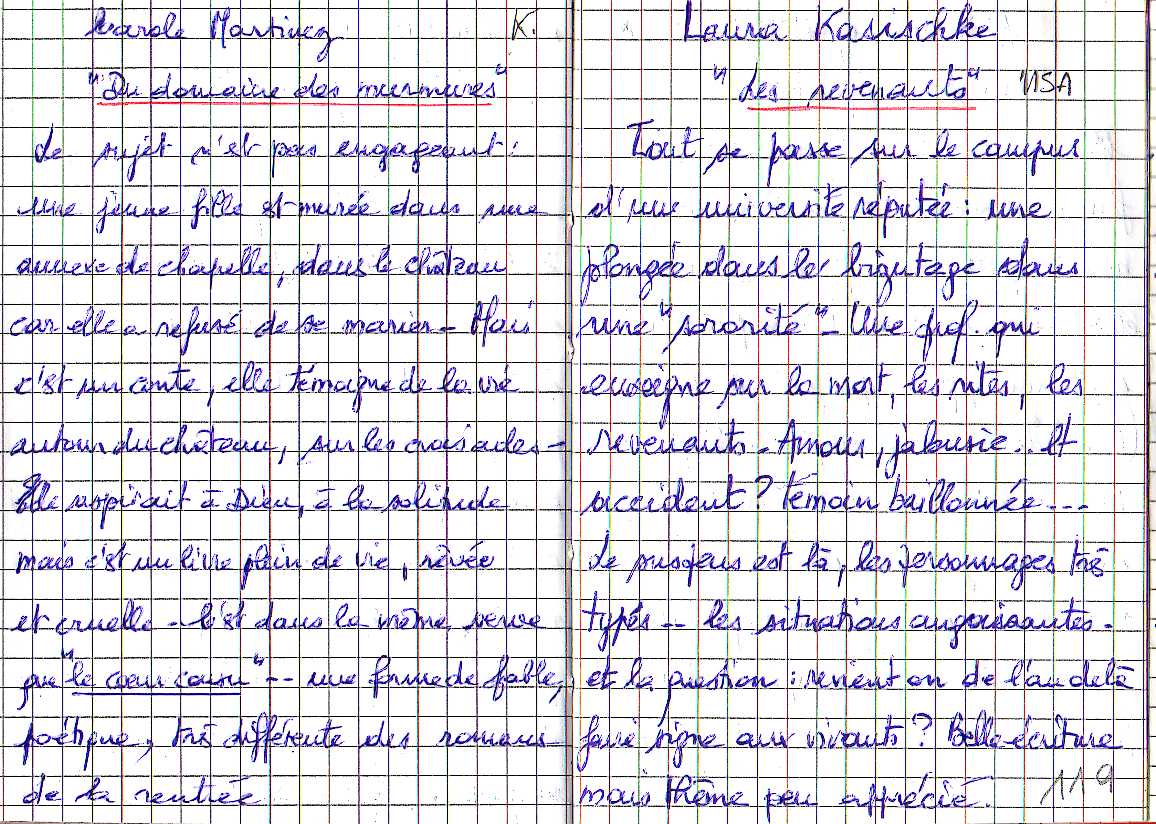 Carole Martinez K.
"Du domaine des murmures"
Le sujet n'est pas engageant :
une jeune fille est murée dans une
annexe de chapelle, dans le château
car elle a refusé de se marier - Mais
c'est un conte, elle témoigne de la vie
autour du château, sur les croisades -
Elle aspirait à Dieu, à la solitude
mais c'est un livre plein de vie, rêvée
et cruelle - C'est dans la même verve
que "le cœur cousu" -- une forme de fable,
poétique, très différente des romans
de la rentrée
Laura Kasischke
"Les revenants" USA
Tout se passe sur le campus
d'une université réputée : une
plongée dans le bizutage dans
une "sororité" - Une prof. qui
enseigne sur la mort, les rites, les
revenants - Amour, jalousie .. et
accident ? témoin baillonnée ---
Le suspens est là, les personnages très
typés -- les situations angoissantes -
et la question : revient on de l'au delà
faire signe aux vivants ? Belle écriture
mais thème peu apprécié.
119